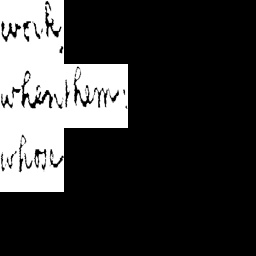 work,
when them:
whose